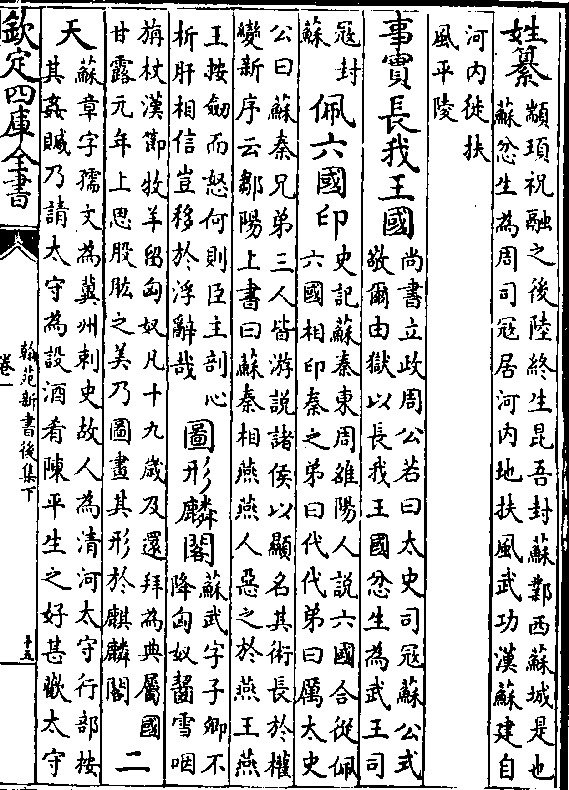 姓纂
顓頊祝融之後陸終生昆吾封蘇鄴西蘇城是也
蘇忿生為周司冦居河内地扶風武功漢蘇建自
河内徙扶
風平陵
事實長我王國
尚書立政周公若曰太史司冦蘇公式
敬爾由獄以長我王國忿生為武王司
冦封
蘇
佩六國印
史記蘇秦東周雒陽人說六國合從佩
六國相印秦之弟曰代代弟曰厲太史
公曰蘇秦兄弟三人皆游說諸侯以顯名其術長於權
變新序云鄒陽上書曰蘇秦相燕燕人惡之於燕王燕
王按劒而怒何則臣主剖心
析肝相信豈移於浮辭哉
圖形麟閣
蘇武字子卿不
降匈奴齧雪咽
旃杖漢節牧羊留匈奴凡十九歲及還拜為典屬國
甘露元年上思股肱之美乃圖畫其形於麒麟閣
二
天
蘇章字孺文為冀州刺史故人為清河太守行部按
其姦贓乃請太守為設酒肴陳平生之好甚歡太守
欽定四庫全書
卷一
翰苑新書後集下
十五